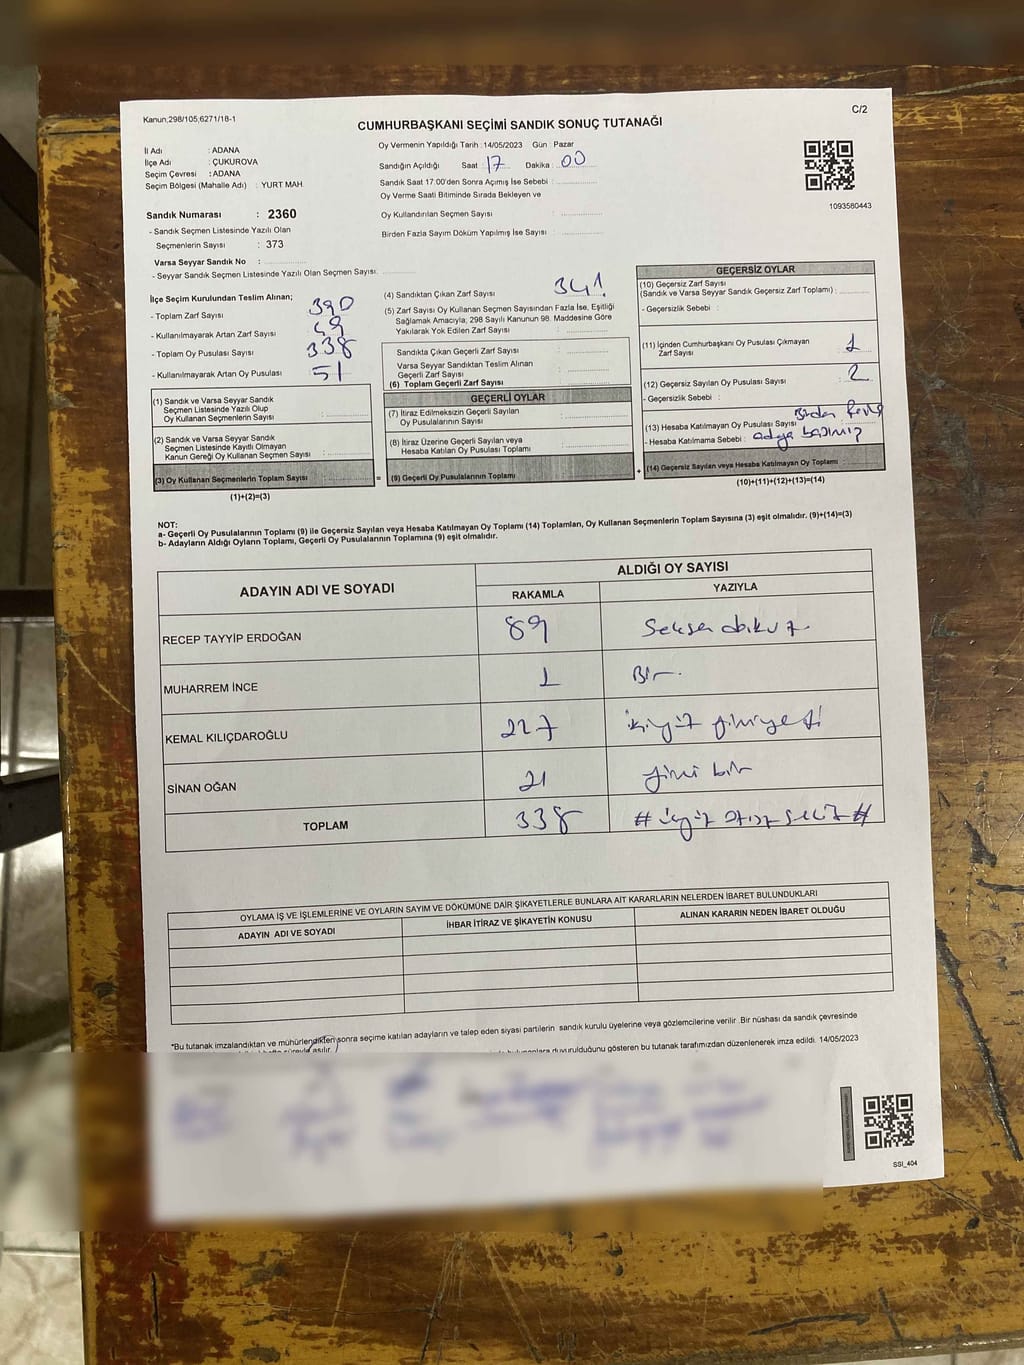 Kanun,298/105,6271/18-1
C/2
CUMHURBAŞKANI SEÇİMİ SANDIK SONUÇ TUTANAĞI
İl Adı : ADANA
İlçe Adı : ÇUKUROVA
Seçim Çevresi : ADANA
Seçim Bölgesi (Mahalle Adı) : YURT MAH.
Oy Vermenin Yapıldığı Tarih : 14/05/2023 Gün : Pazar
Sandığın Açıldığı Saat : 17 Dakika : 00
Sandık Saat 17:00'den Sonra Açımış İse Sebebi :
Oy Verme Saati Bitiminde Sırada Bekleyen ve
Oy Kullandırılan Seçmen Sayısı :
Birden Fazla Sayım Döküm Yapılmış İse Sayısı :
1093580443
Sandık Numarası : 2360
- Sandık Seçmen Listesinde Yazılı Olan
Seçmenlerin Sayısı : 373
Varsa Seyyar Sandık No :
- Seyyar Sandık Seçmen Listesinde Yazılı Olan Seçmen Sayısı:
İlçe Seçim Kurulundan Teslim Alınan;
- Toplam Zarf Sayısı : 390
- Kullanılmayarak Artan Zarf Sayısı : 49
- Toplam Oy Pusulası Sayısı : 338
- Kullanılmayarak Artan Oy Pusulası : 51
(1) Sandık ve Varsa Seyyar Sandık
Seçmen Listesinde Yazılı Olup
Oy Kullanan Seçmenlerin Sayısı :
(2) Sandık ve Varsa Seyyar Sandık
Seçmen Listesinde Kayıtlı Olmayan
Kanun Gereği Oy Kullanan Seçmen Sayısı :
(3) Oy Kullanan Seçmenlerin Toplam Sayısı :
(1)+(2)=(3)
(4) Sandıktan Çıkan Zarf Sayısı : 341
(5) Zarf Sayısı Oy Kullanan Seçmen Sayısından Fazla İse, Eşitliği
Sağlamak Amacıyla; 298 Sayılı Kanunun 98. Maddesine Göre
Yakılarak Yok Edilen Zarf Sayısı :
Sandıkta Çıkan Geçerli Zarf Sayısı :
Varsa Seyyar Sandıktan Teslim Alınan
Geçerli Zarf Sayısı :
(6) Toplam Geçerli Zarf Sayısı :
GEÇERLİ OYLAR
(7) İtiraz Edilmeksizin Geçerli Sayılan
Oy Pusulalarının Sayısı :
(8) İtiraz Üzerine Geçerli Sayılan veya
Hesaba Katılan Oy Pusulası Toplamı :
= (9) Geçerli Oy Pusulalarının Toplamı :
GEÇERSİZ OYLAR
(10) Geçersiz Zarf Sayısı
(Sandık ve Varsa Seyyar Sandık Geçersiz Zarf Toplamı) :
- Geçersizlik Sebebi :
(11) İçinden Cumhurbaşkanı Oy Pusulası Çıkmayan
Zarf Sayısı : 1
(12) Geçersiz Sayılan Oy Pusulası Sayısı : 2
- Geçersizlik Sebebi : Birden fazla
(13) Hesaba Katılmayan Oy Pusulası Sayısı :
- Hesaba Katılmama Sebebi : adya
+ (14) Geçersiz Sayılan veya Hesaba Katılmayan Oy Toplamı :
(10)+(11)+(12)+(13)=(14)
NOT:
a- Geçerli Oy Pusulalarının Toplamı (9) ile Geçersiz Sayılan veya Hesaba Katılmayan Oy Toplamı (14) Toplamları, Oy Kullanan Seçmenlerin Toplam Sayısına (3) eşit olmalıdır. (9)+(14)=(3)
b- Adayların Aldığı Oyların Toplamı, Geçerli Oy Pusulalarının Toplamına (9) eşit olmalıdır.
ADAYIN ADI VE SOYADI
ALDIĞI OY SAYISI
RAKAMLA YAZIYLA
RECEP TAYYİP ERDOĞAN 89 Seksen dokuz
MUHARREM İNCE 1 Bir
KEMAL KILIÇDAROĞLU 227 ikiyüz yirmiyedi
SİNAN OĞAN 21 yirmi bir
TOPLAM 338 # üçyüz otuz sekiz #
OYLAMA İŞ VE İŞLEMLERİNE VE OYLARIN SAYIM VE DÖKÜMÜNE DAİR ŞİKAYETLERLE BUNLARA AİT KARARLARIN NELERDEN İBARET BULUNDUKLARI
ADAYIN ADI VE SOYADI İHBAR İTİRAZ VE ŞİKAYETİN KONUSU ALINAN KARARIN NEDEN İBARET OLDUĞU
"Bu tutanak imzalandıktan ve mühürlendikten sonra seçime katılan adayların ve talep eden siyasi partilerin sandık kurulu üyelerine veya gözlemcilerine verilir .Bir nüshası da sandık çevresinde
duyurulduğunu gösteren bu tutanak tarafımızdan düzenlenerek imza edildi. 14/05/2023
SSI_404